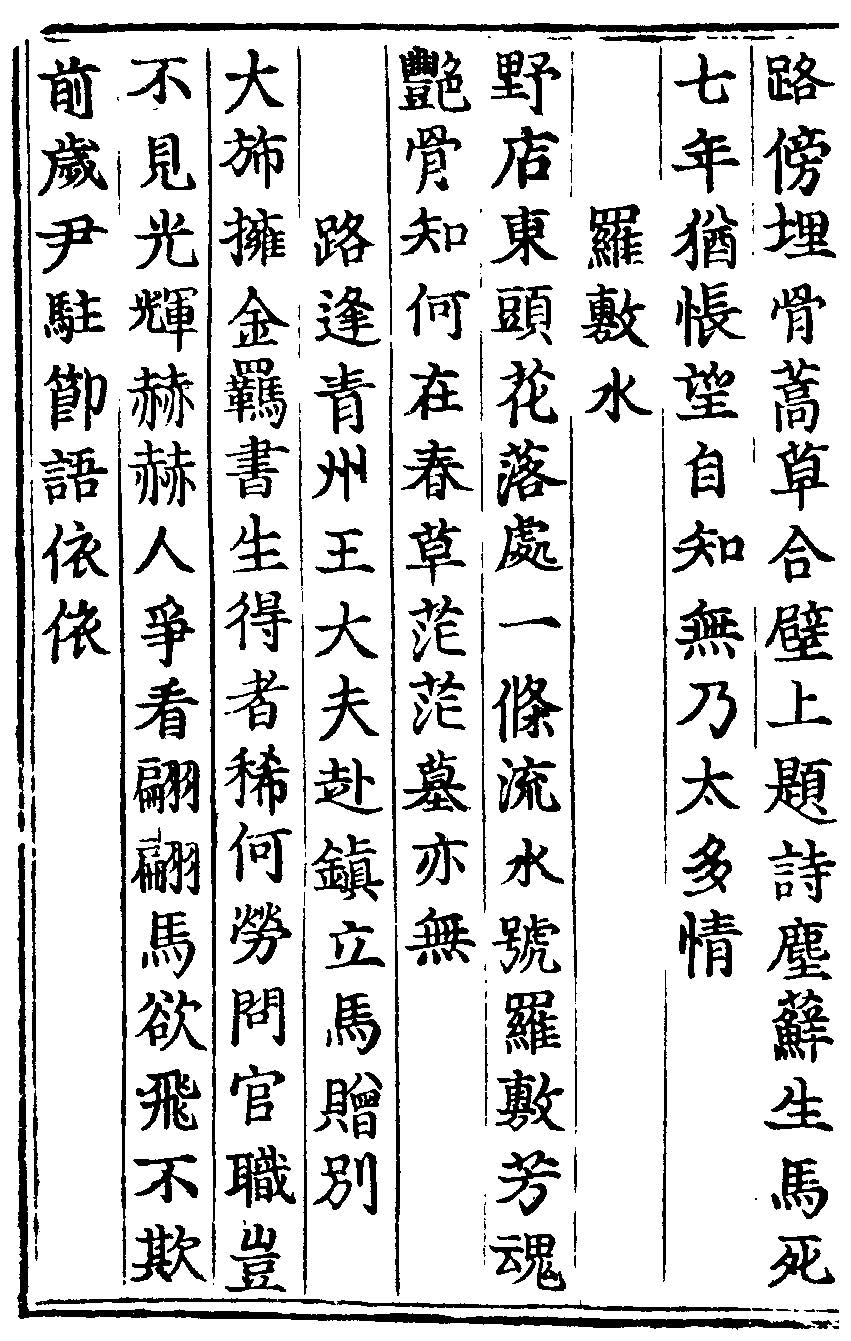 路傍埋骨蒿草合壁上題詩塵蘚生馬死
七年猶悵望自知無乃太多情
羅敷水
野店東頭花落處一條流水號羅敷芳魂
艷骨知何在春草茫茫墓亦無
路逢青州王大夫赴鎮立馬贈別
大斾擁金羈書生得者稀何勞問官職豈
不見光輝赫赫人爭看翩翩馬欲飛不欺
前歲尹駐節語依依